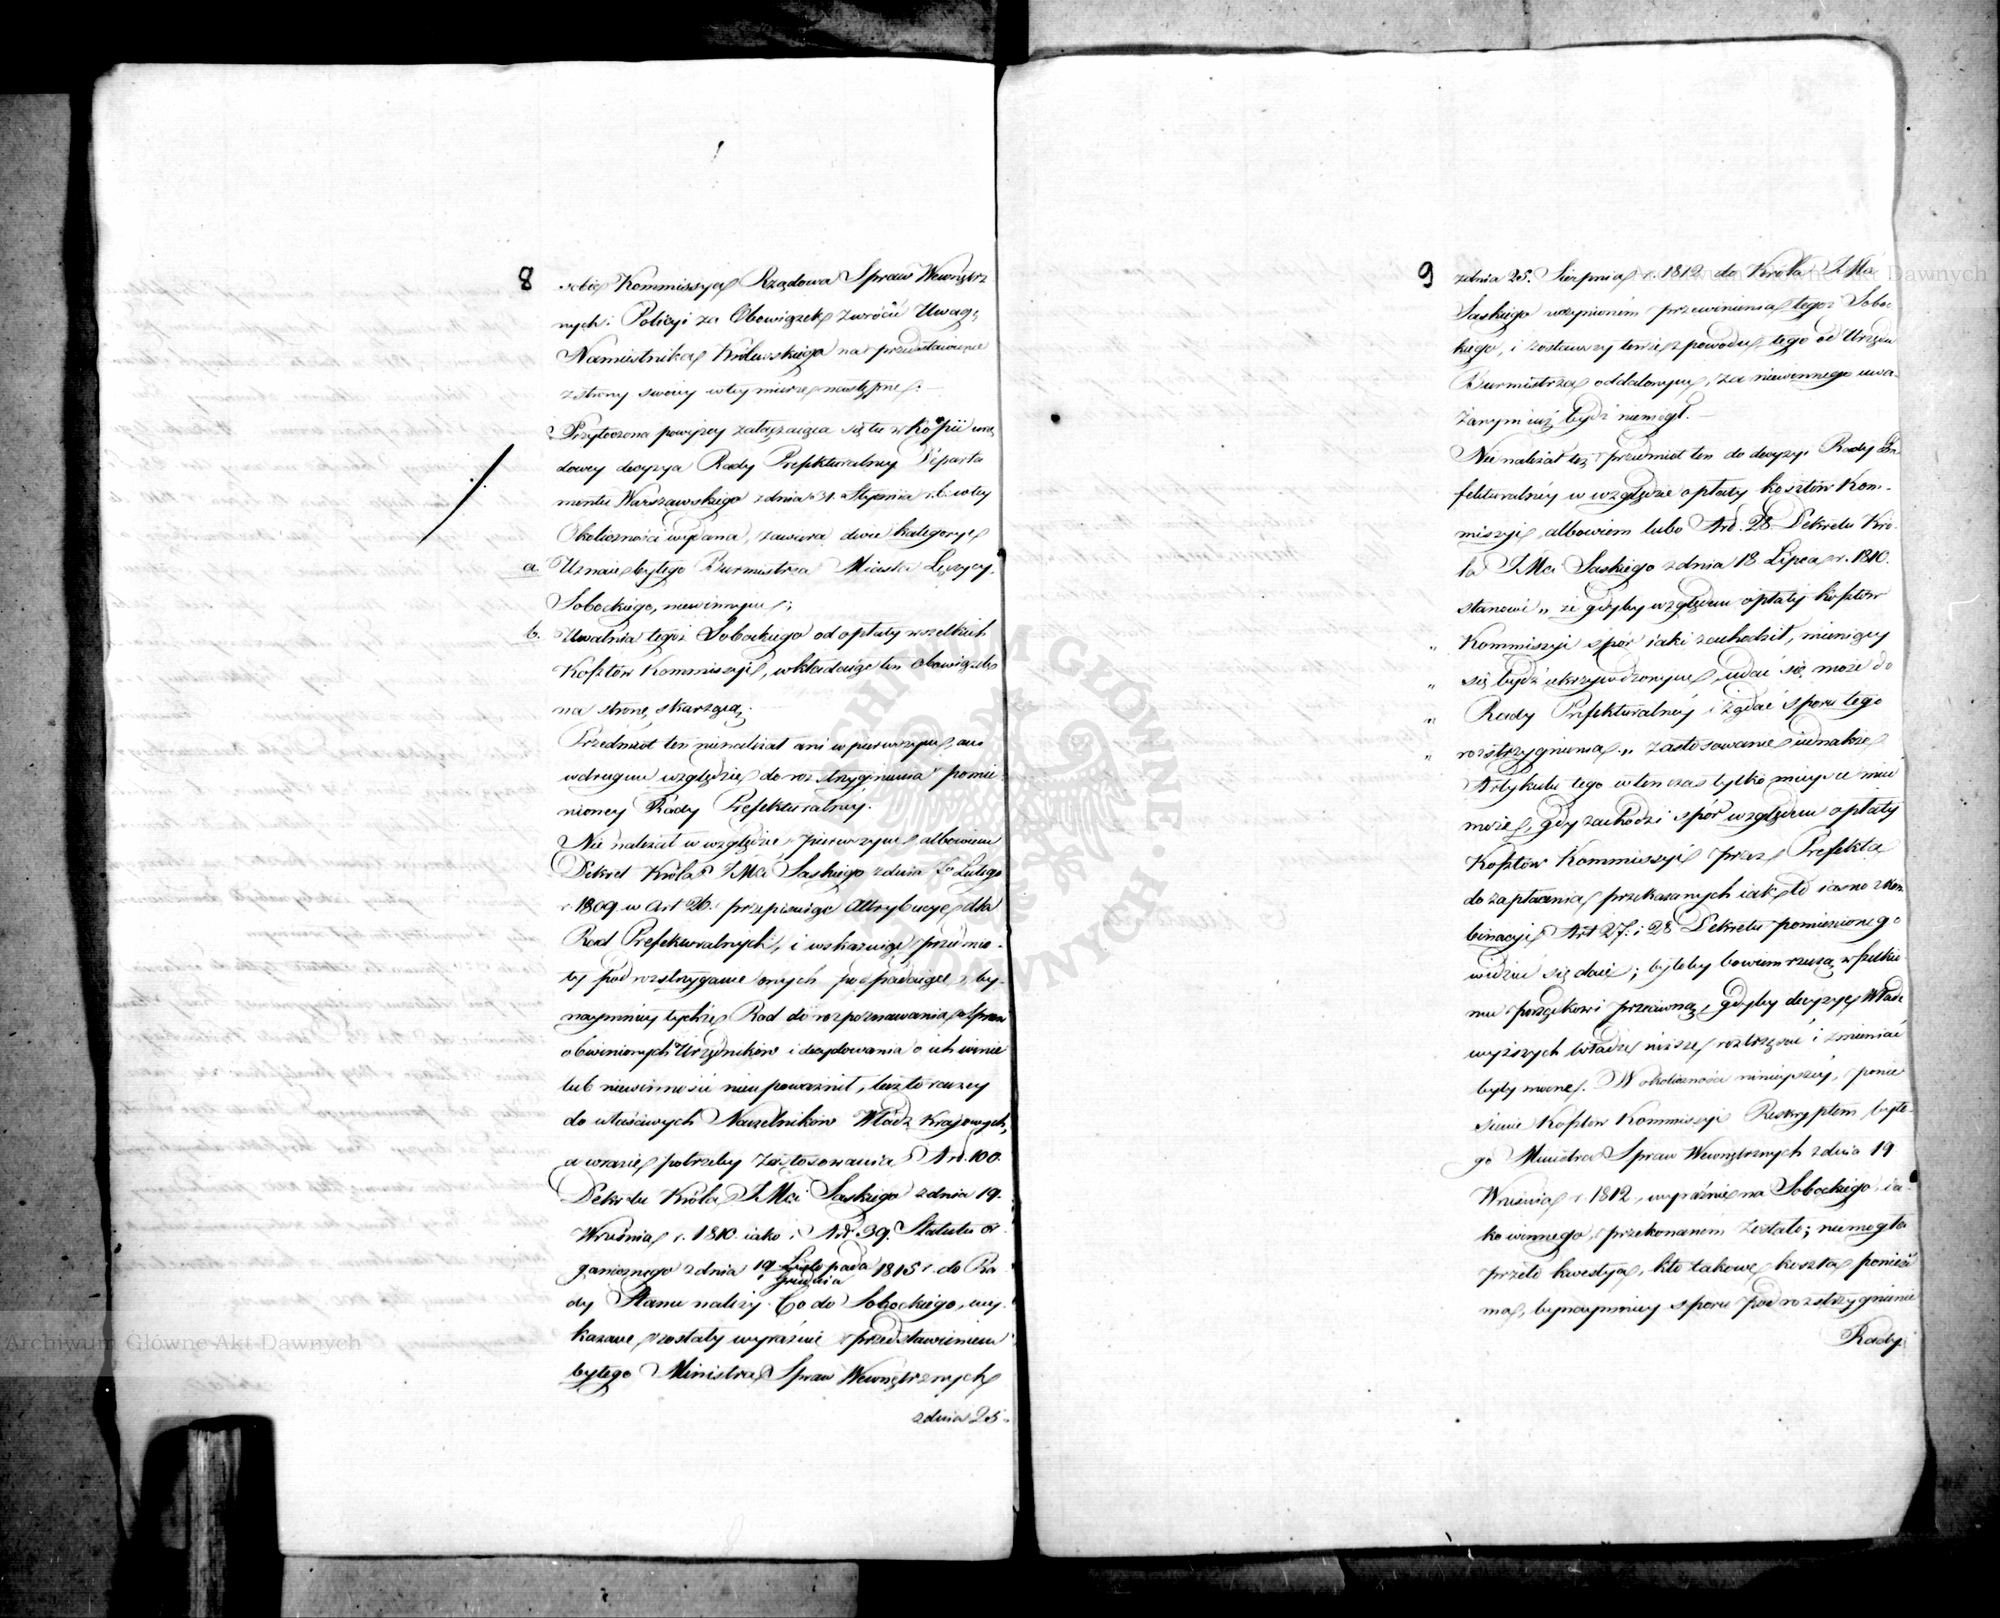 8
sobie Kommissya Rządowa Spraw Wewnętrz
nych i Policyi za Obowiązek zwrócić Uwagę
Namiestnika Królewskiego na przedstawienie
z strony swoiey w tey mierze następne:
Przytoczona powyżey załączaiąca się tu w kopii urzę
dowey decyzya Rady Prefekturalney Departa
mentu Warszawskiego z dnia 31. Stycznia r. b. w tey
Okoliczności wydana, zawiera dwie kategorye
a. Uznaie byłego Burmistrza Miasta Łęczycy,
Sobockiego, niewinnym;
b. Uwalnia tegoż Sobockiego od opłaty wszelkich
Kosztów Kommissyi, wkładaiąc ten obowiązek
na stronę skarżącą.
Przedmiot ten nienależał ani w pierwszym, ani
w drugim względzie do rozstrzygnienia pomie
nioney Rady Prefekturalney.
Nie należał w względzie pierwszym albowiem
Dekret Króla JMci Saskiego z dnia 7o Lutego
r. 1809. w Art 26. przepisuiąc Attrybucye dla
Rad Prefekturalnych, i wskazuiąc przedmio-
ty pod rozstrzyganie onych podpadaiące, by-
naymniey tychże Rad do rozpoznawania Spraw
obwinionych Urzędników i decydowania o ich winie
lub niewinności nieupoważnił, lecz to raczey
do właściwych Naczelników Władz Kraiowych,
a w razie potrzeby zastosowania Art. 100.
Dekretu Króla JMci Saskiego z dnia 19.
Września r. 1810. iako i Art. 39. Statutu or-
ganicznego z dnia 19 Listopada / 1 Grudnia 1815 r. do Ra
dy Stanu należy. Co do Sobockiego, wy-
kazane zostały wyraźnie przedstawieniem
byłego Ministra Spraw Wewnętrznych
z dnia 25.
9
z dnia 25. Sierpnia r. 1812 do Króla JMci
Saskiego uczynionem przewinienia tegoż Soboc
kiego, i zostawszy tenże z powodu tego od Urzędu
Burmistrza oddalonym, za niewinnego uwa-
żanym iuż bydź niemógł.
Nie należał też przedmiot ten do decyzyi Rady Pre
fekturalnéy w względzie opłaty kosztów Kom-
missyi, albowiem lubo Art. 28 Dekretu Kró-
la JMci Saskiego z dnia 18 Lipca r. 1810.
stanowi „że gdyby względem opłaty kosztów
„ Kommissyi spór iaki zachodził, mieniący
„ się bydź ukrzywdzonym, udać się może do
„ Rady Prefekturalnéy i żądać sporu tego
„ rozstrzygnienia„ zastosowanie iednakże
Artykułu tego w ten czas tylko mieysce mieć
może, gdy zachodzi spór względem opłaty
Kosztów Kommissyi przez Prefekta
do zapłacenia przekazanych iak to iasno z kom
binacyi Art 27. i 28 Dekretu pomienionego
widzieć się daie; byłoby bowiem rzeczą wszelkie
mu porządkowi przeciwną, gdyby decyzye Władz
wyższych Władze niższe roztrząsać i zmieniać
były mocne. W okoliczności ninieyszéy, ponie
sienie Kosztów Kommissyi Reskryptem byłe-
go Ministra Spraw Wewnętrznych z dnia 19
Września r. 1812, wyraźnie na Sobockiego, ia-
ko winnego, przekazanem zostało; niemogła
przeto kwestya, kto takowe koszta ponieść
ma, bynaymniey sporu pod rozstrzygnienie
Rady
Archiwum Główne Akt Dawnych